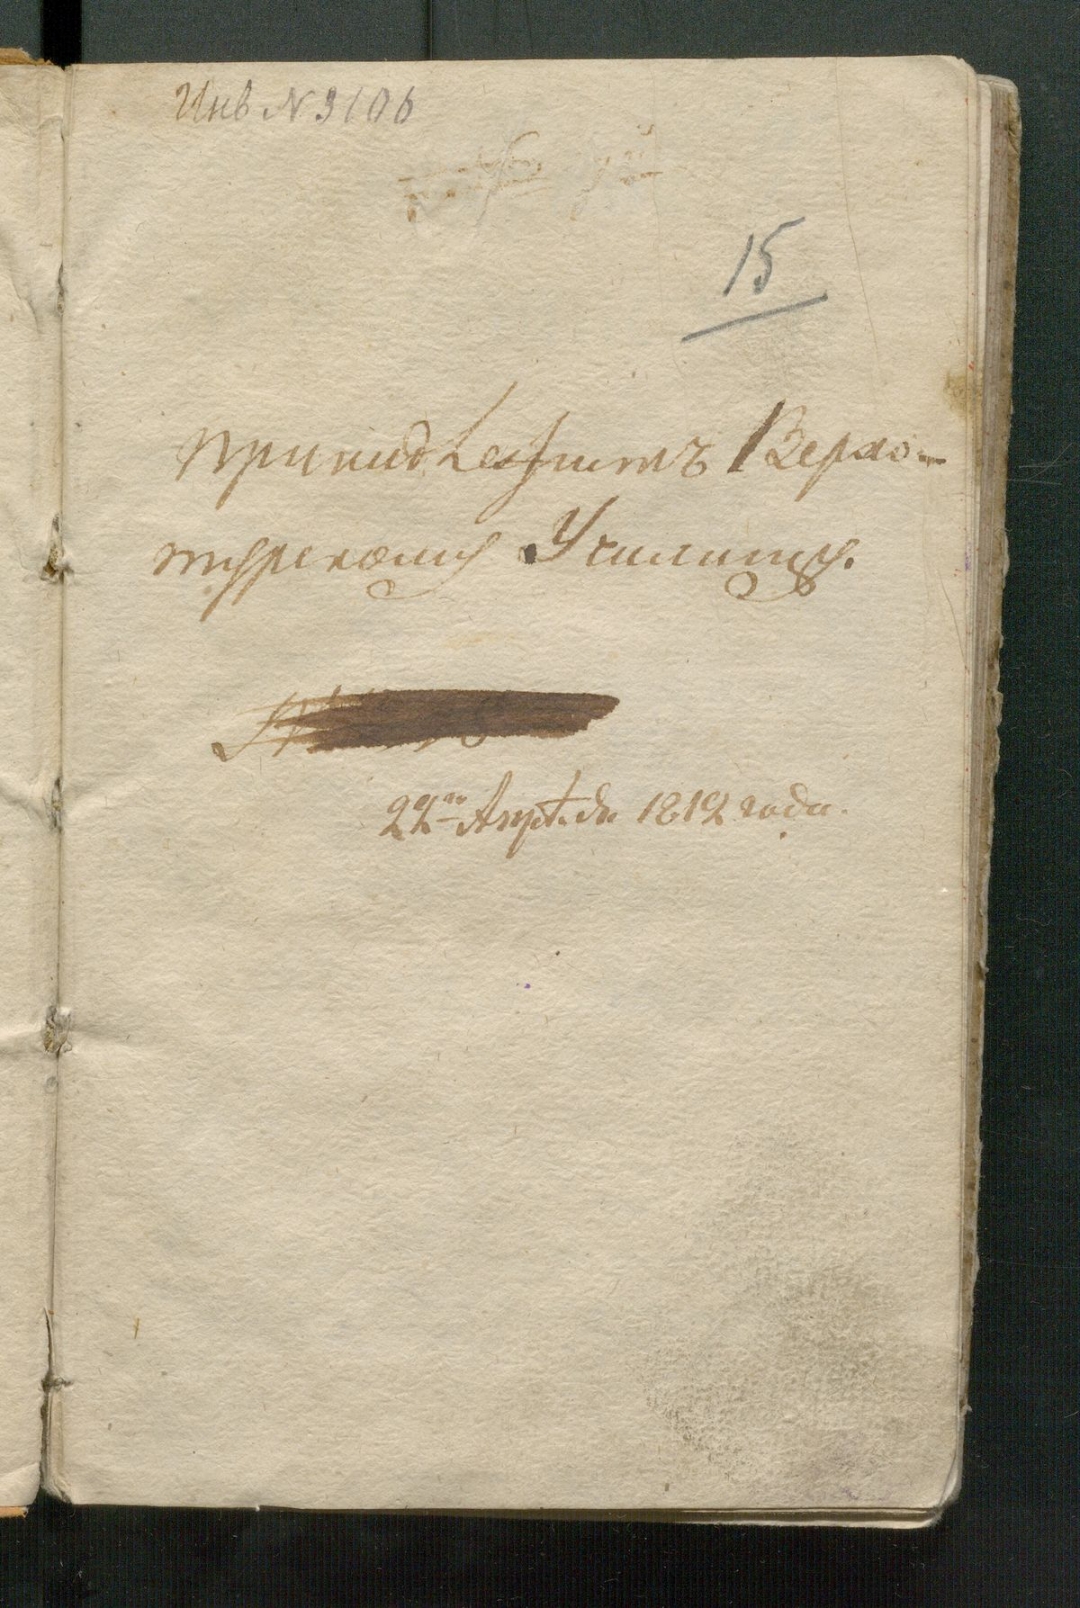 Инв N 3106
15
принадлежитъ Верхо-
турскому Училищу.
22го Апрѣля 1812 года.